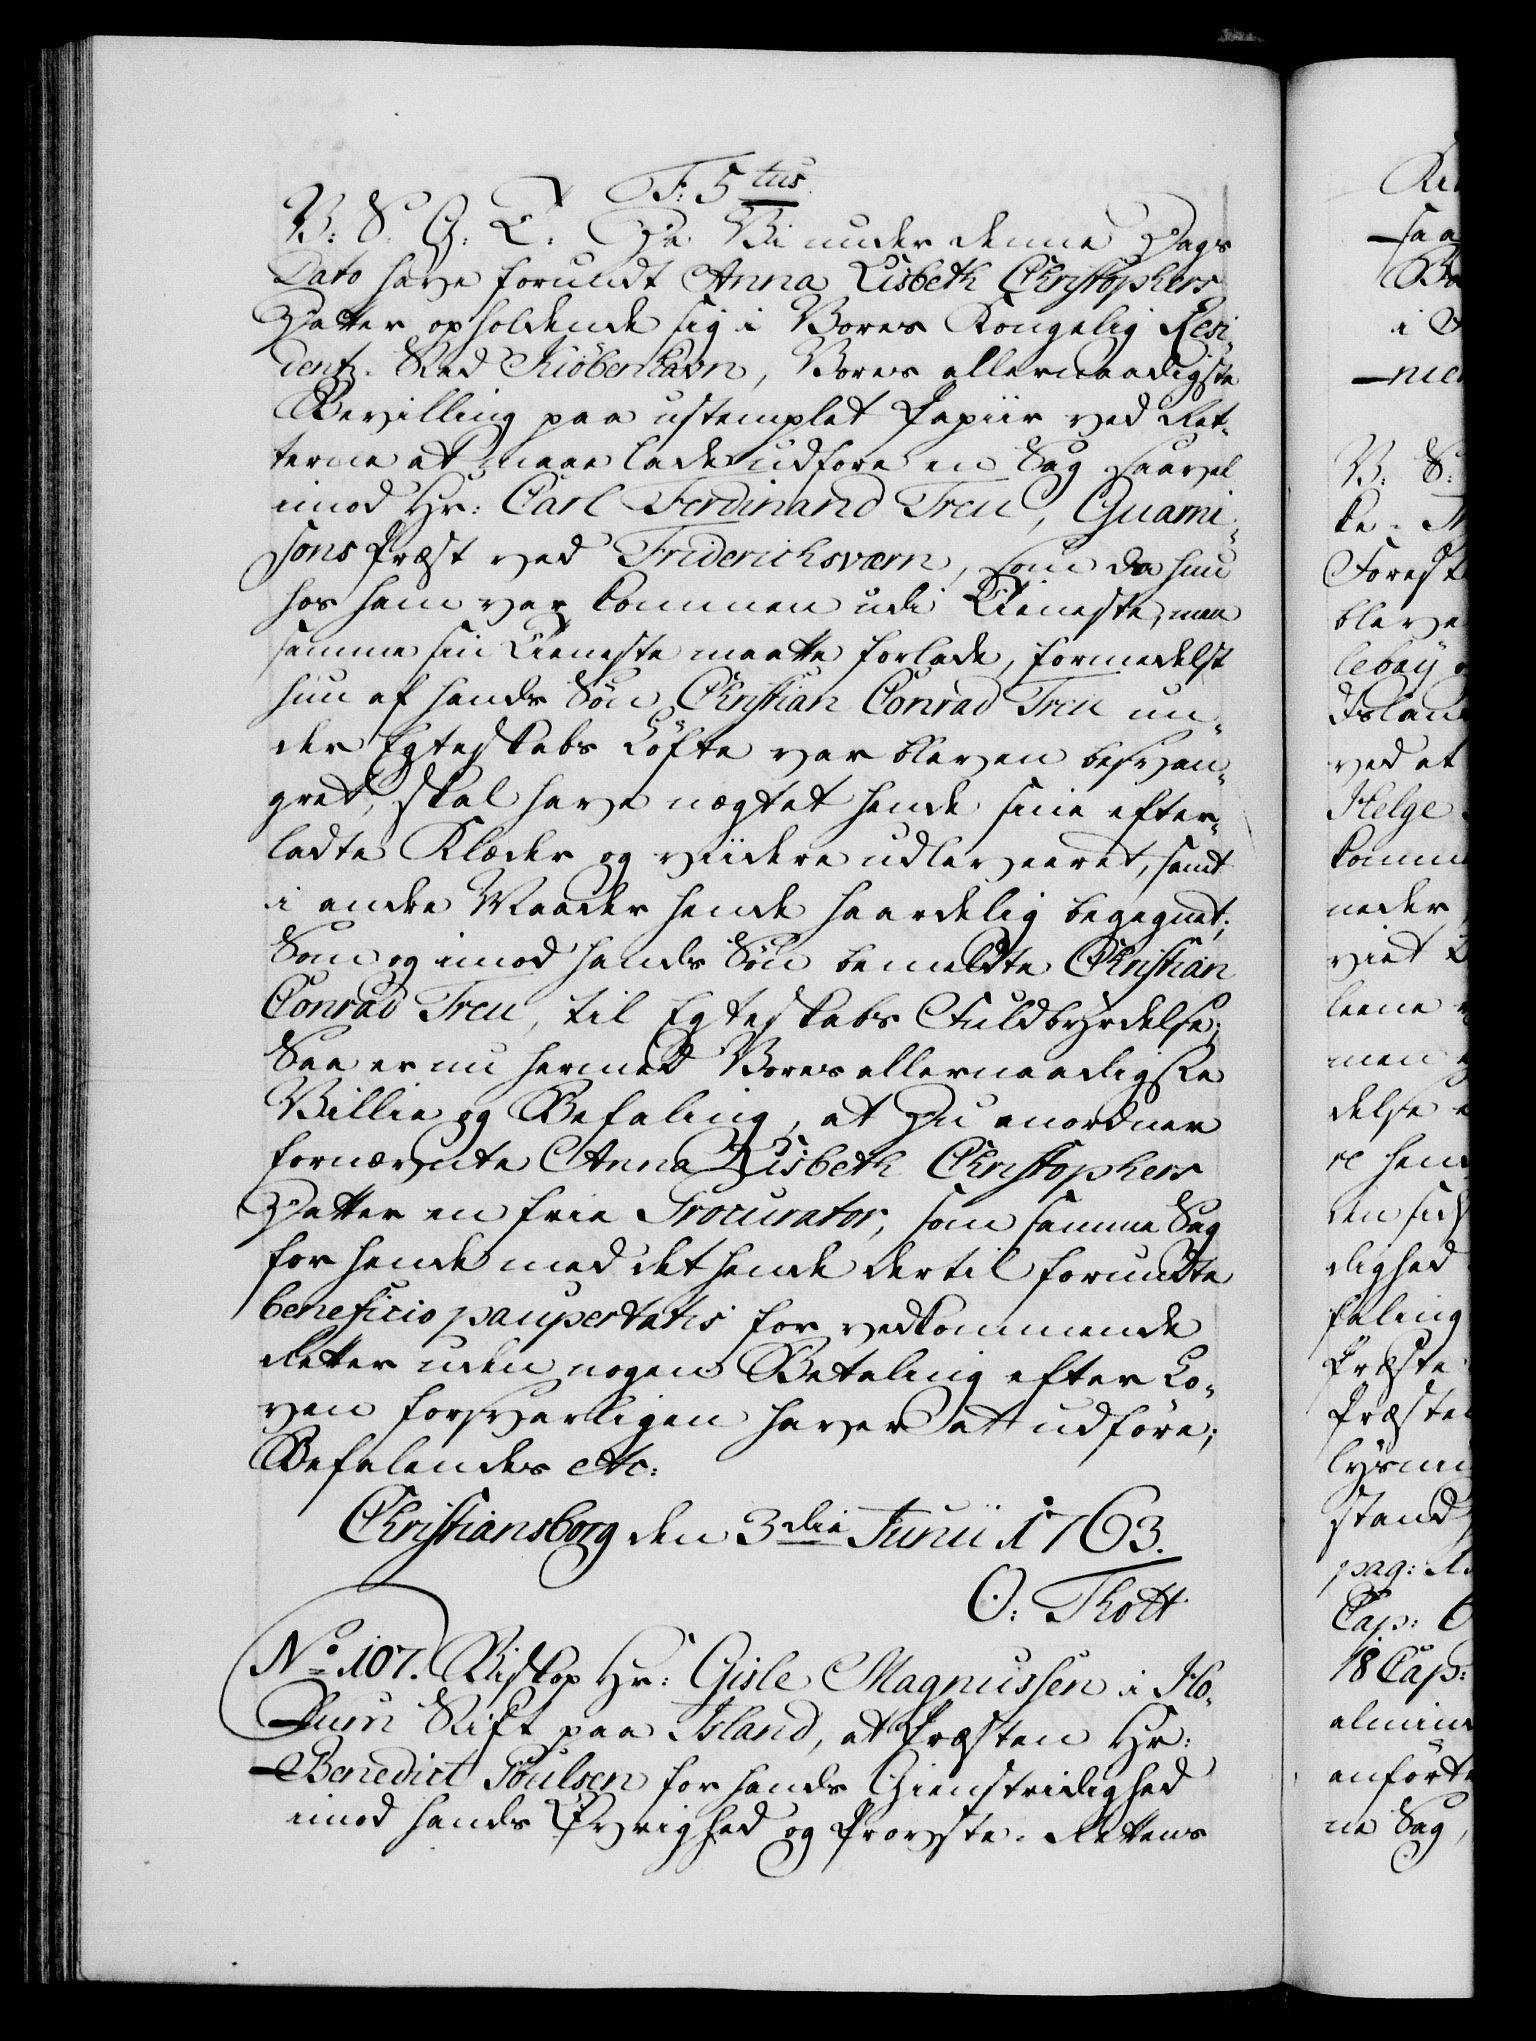 F: 5tus
V: S: G: T: Da Vi under denne Dags
Dato have forundt Anna Lisbeth Christophers
Datter opholdende sig i Vores Kongelig Resi-
dentz-Stad Kiöbenhavn, Vores allernaadigste
Bevilling paa ustemplet Papiir ved Ret-
terne at maae lade udføre en Sag saavel
imod Hr: Carl Ferdinand Treu, Guarni-
sons Præst ved Friderichsværn, som da hun
hos ham var kommen udi Tieneste, men
samme sin Tieneste maatte forlade, formedelst
hun af hands Søn Christian Conrad Treu un-
der Egteskabs Løfte var bleven besvan-
gret, skal have nægtet hende sine efter-
ladte Klæder og viidere udleveeret, samt
i andre Maader hende haardelig begegnet;
Som og imod hands Søn bemeldte Christian
Conrad Treu, til Egteskabs Fuldbyrdelse;
Saa er nu hermed Vores allernaadigste
Villie og Befaling, at Du anordner
fornævnte Anna Lisbeth Christophers
Datter en frie Procurator, som samme Sag
for hende med det hende dertil forundte
beneficio paupertatis for vedkommende
Retter uden nogen Betaling efter Lo-
ven forsvarligen haver at udføre;
Befalendes etc:
Christiansborg den 3die Junii 1763.
O: Thott
No 107. Biskop Hr: Gisle Magnussen i Ho-
lum Stift paa Island, at Præsten Hr:
Benedict Poulsen for hands Gienstridighed
imod hands Øvrighed og Provste-Rettens
V: S:
Forest
bleve
Helge
neder
viet
men
delse
dighed
faling
Præste
Præste
stand
pag:
Cap:
18 Cap:
anførte
ne Sag,